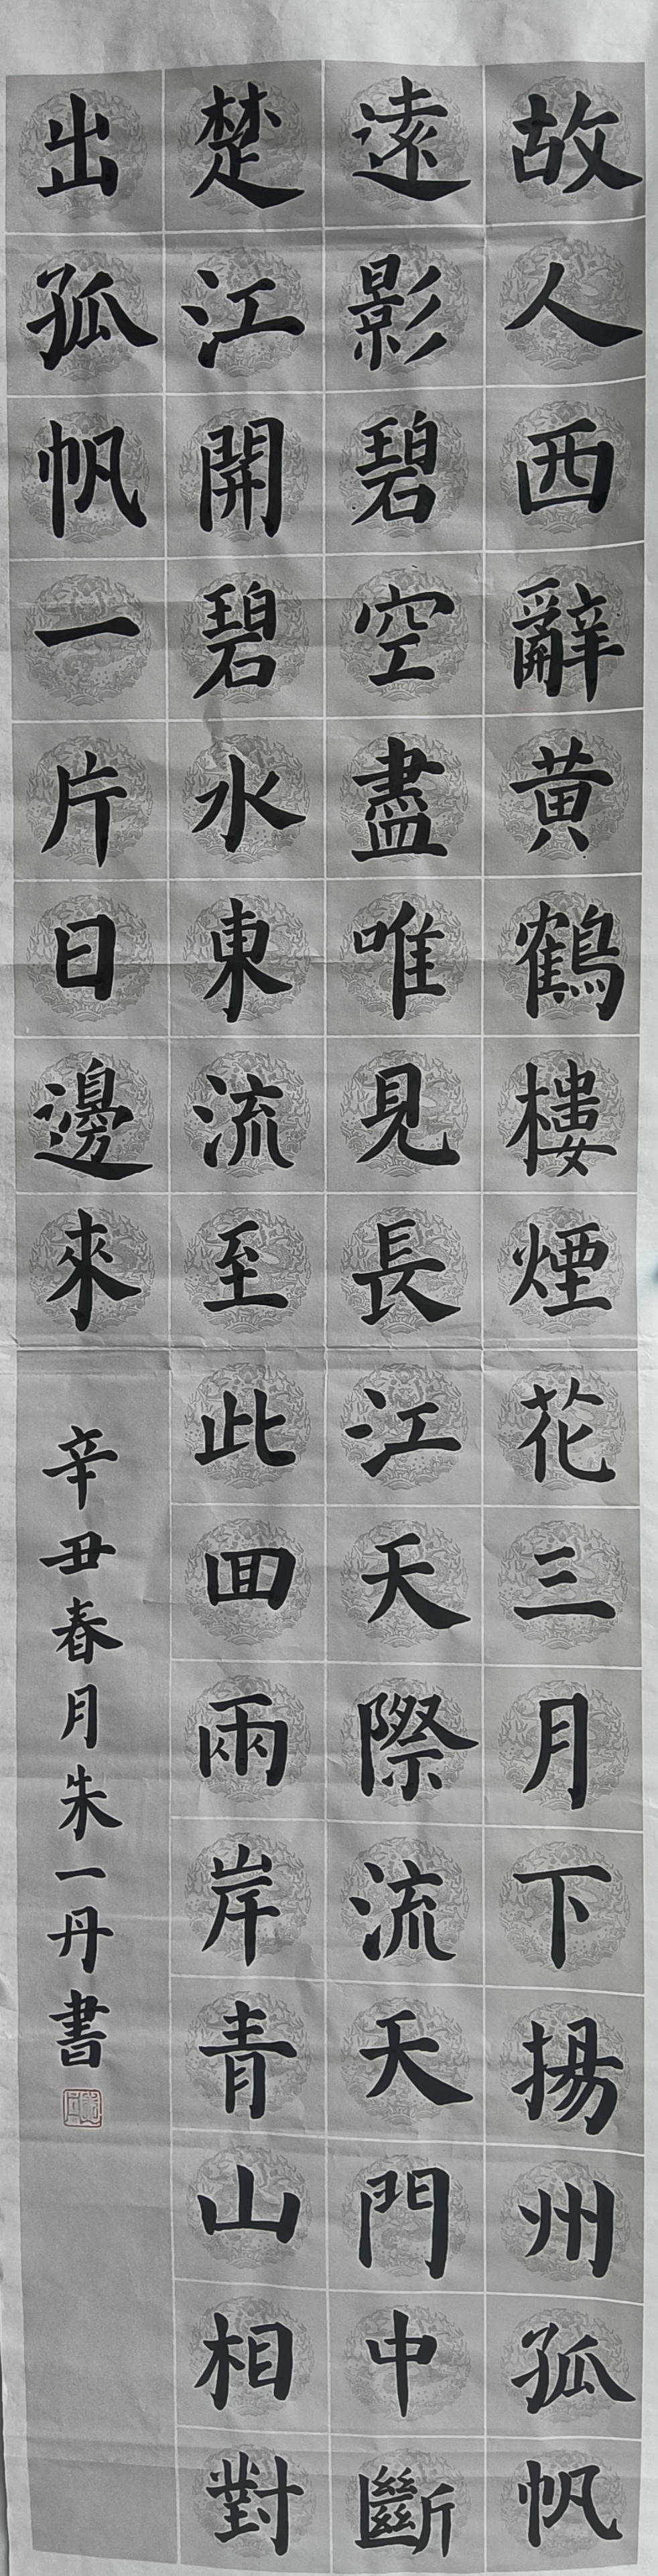 故人西辭黄鶴樓煙花三月下揚州孤帆
遠影碧空盡唯見長江天際流天門中斷
楚江開碧水東流至此回兩岸青山相對
出孤帆一片日邊來
辛丑春月朱一丹書